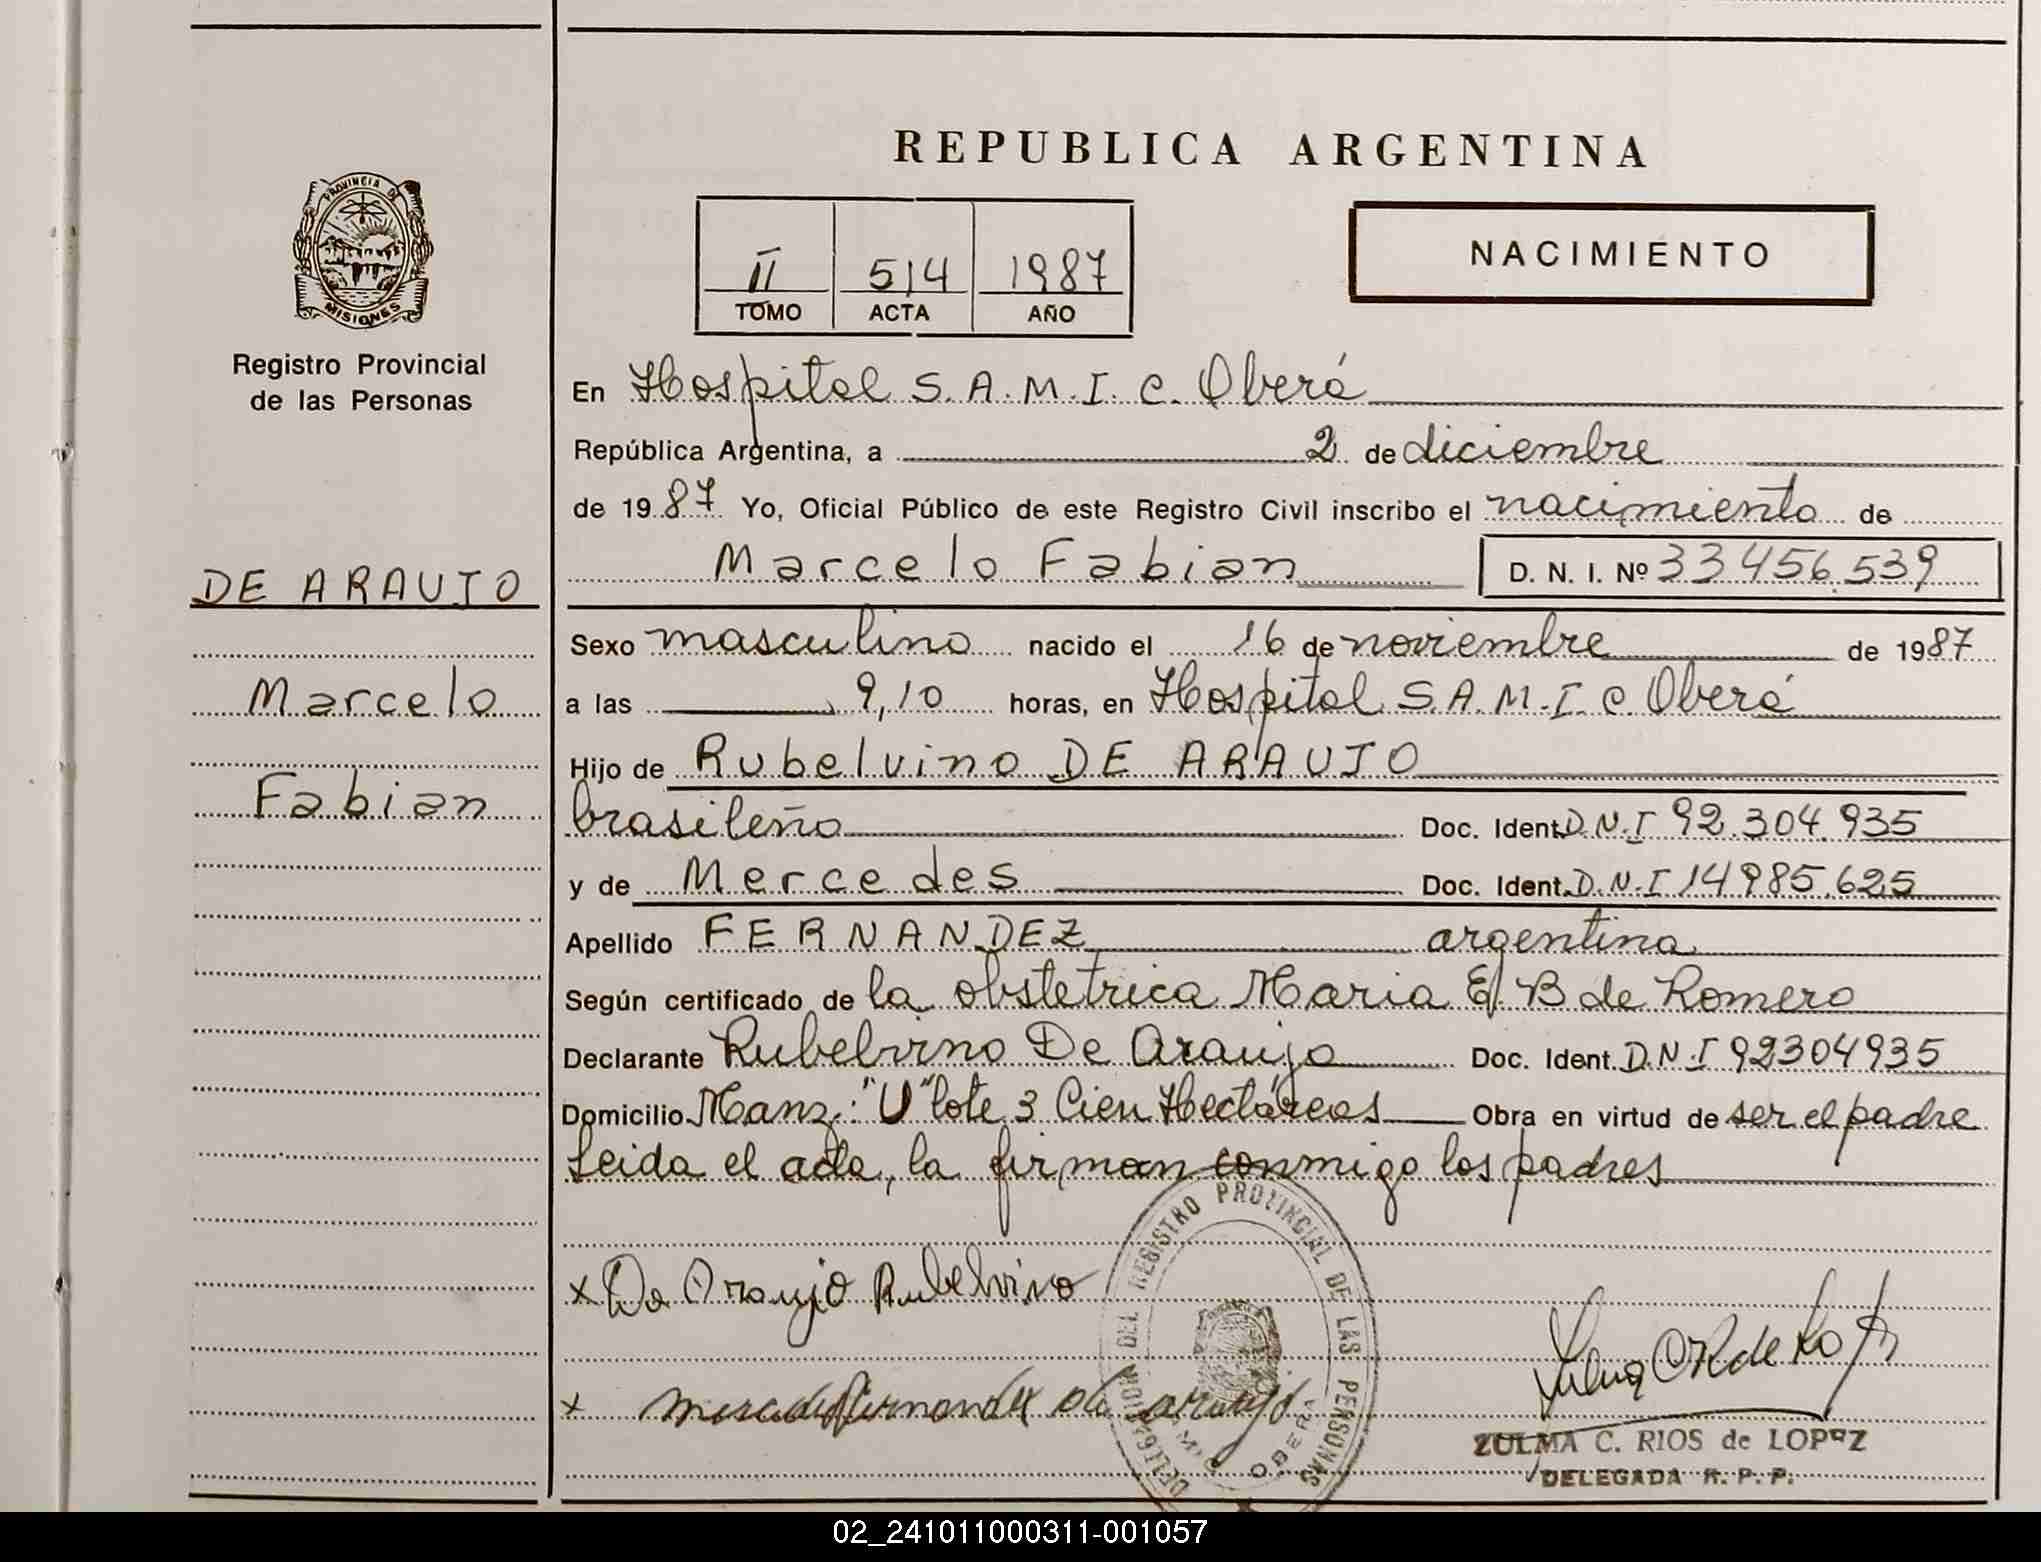 REPUBLICA ARGENTINA
PROVINCIA DE
MISIONES
Registro Provincial
de las Personas
II 514 1987
TOMO ACTA AÑO
NACIMIENTO
En Hospital S.A.M.I.C. Oberá
República Argentina, a 2 de diciembre
de 1987 Yo, Oficial Público de este Registro Civil inscribo el nacimiento de
Marcelo Fabian D. N. I. Nº 33456.539
DE ARAUJO
Marcelo
Fabian
Sexo masculino nacido el 16 de noviembre de 1987
a las 9,10 horas, en Hospital S.A.M.I.C. Oberá
Hijo de Rubelvino DE ARAUJO
brasileño Doc. Ident. D.N.I 92.304.935
y de Mercedes Doc. Ident. D.N.I 14985.625
Apellido FERNANDEZ argentina
Según certificado de la obstetrica Maria E. B de Romero
Declarante Rubelvino De Araujo Doc. Ident. D.N.I 92304935
Domicilio Manz: "U" lote 3 Cien Hectáreas Obra en virtud de ser el padre
Leida el acta, la firman conmigo los padres
x De Araujo Rubelvino
x Mercedes fernandez de araujo
DELEGACION DEL REGISTRO PROVINCIAL DE LAS PERSONAS
OBERA
ZULMA C. RIOS de LOPEZ
DELEGADA R. P. P.
02_241011000311-001057